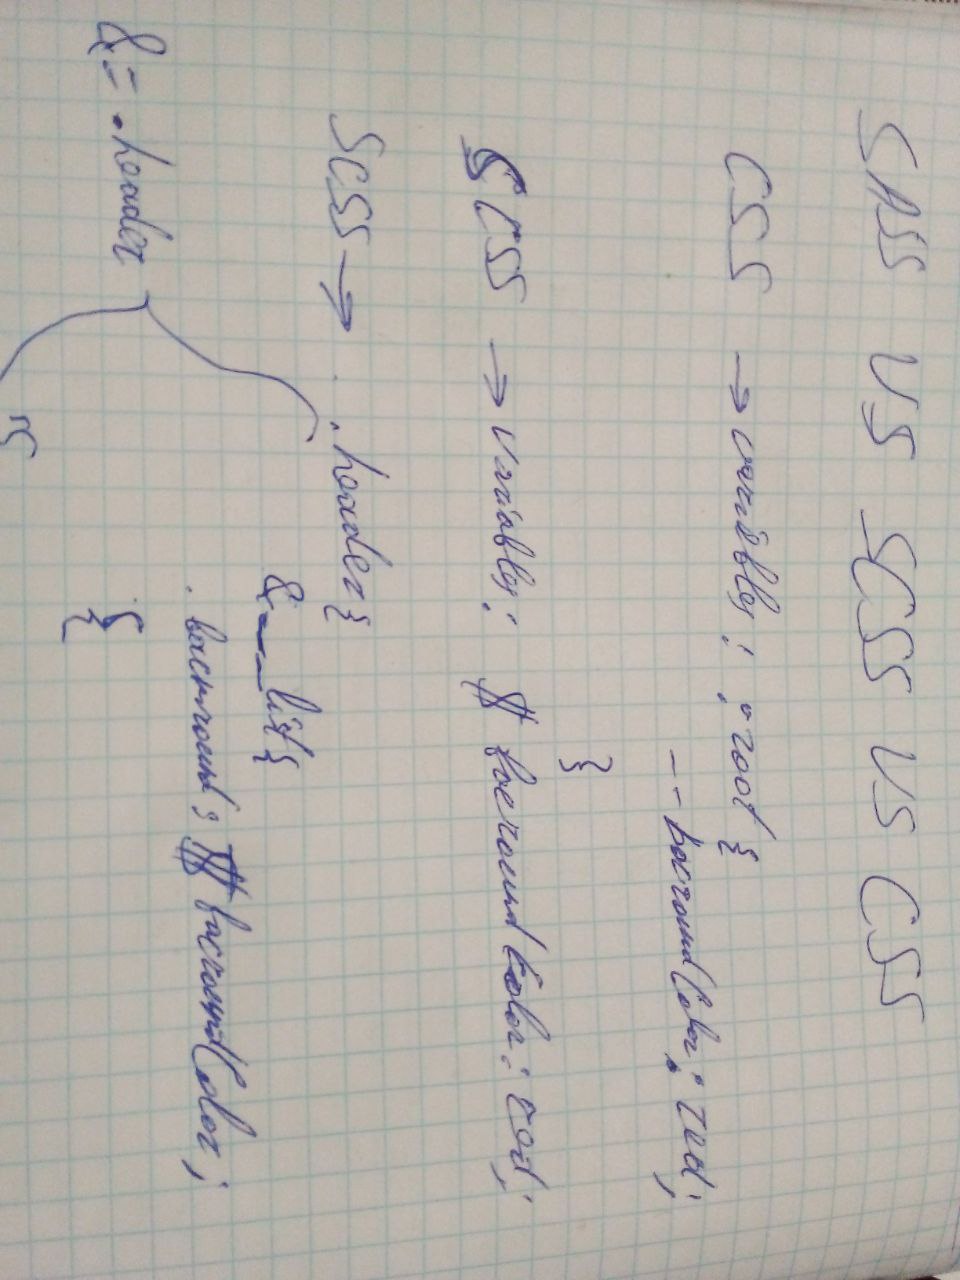 SASS VS SCSS VS CSS
CSS → varibles : :root {
--bacroundColor : red;
}
SCSS → variables : $ bacroundColor : red;
SCSS → .header {
&__list {
bacround : $ bacroundColor ;
}
}
&= .header